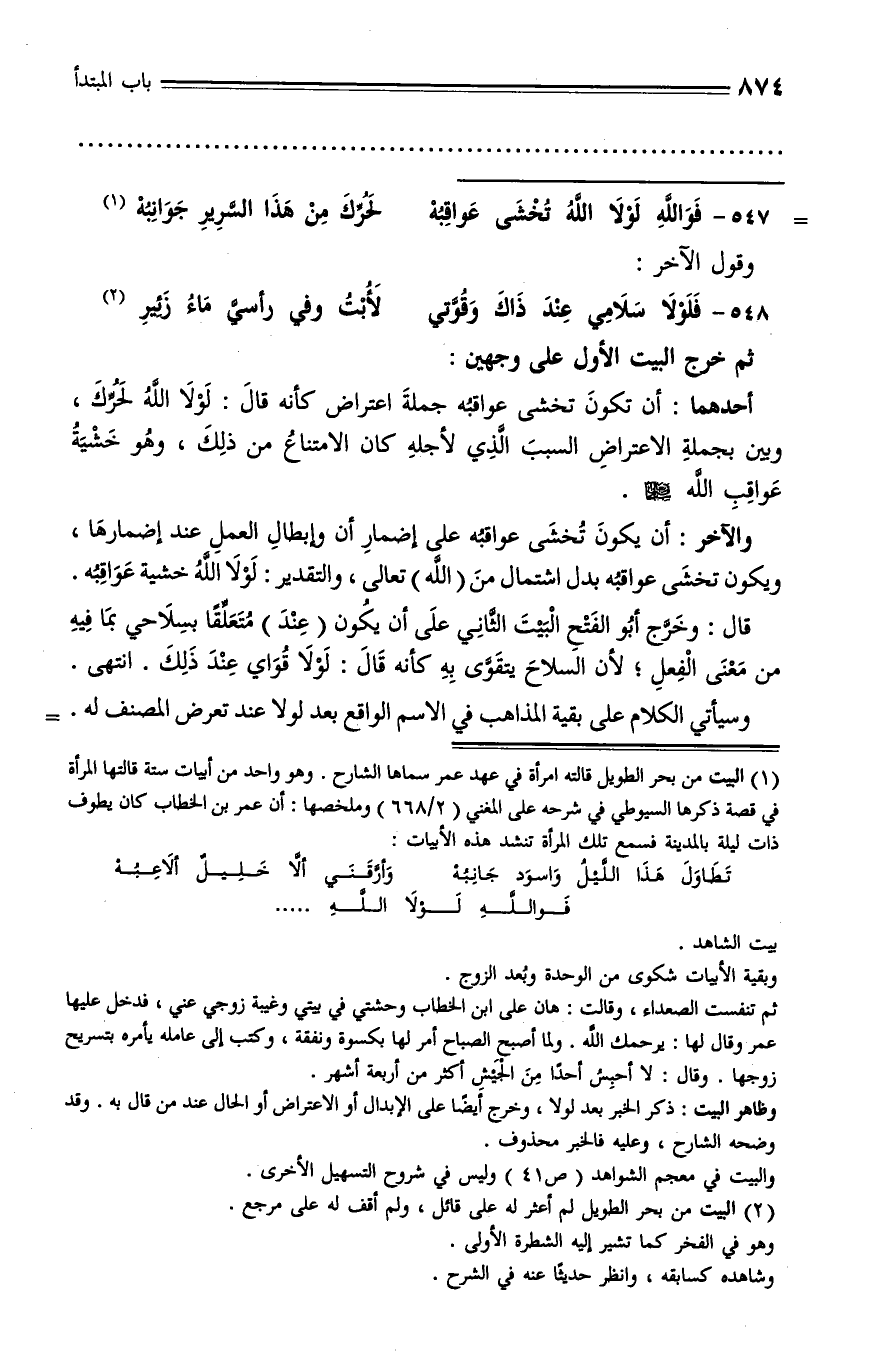 ٨٧٤ باب المبتدأ
................................................................................
= ٥٤٧ - فَوَاللَّهِ لَوْلَا اللَّهُ تُخْشَى عَواقِبُهْ لَحُرِّكَ مِنْ هَذَا السَّرِيرِ جَوَانِبُهْ (١)
وقول الآخر :
٥٤٨ - فَلَوْلَا سَلَامِي عِنْدَ ذَاكَ وَقُوَّتي لَأُبْتُ وفي رأسيَّ مَاءُ زَئِيرِ (٢)
ثم خرج البيت الأول على وجهين :
أحدهما : أن تكونَ تخشى عواقبُه جملةَ اعتراض كأنه قالَ : لَوْلَا اللَّهُ لَحُرِّكَ ،
وبين بجملةِ الاعتراضِ السببَ الَّذِي لأجلهِ كان الامتناعُ من ذلِكَ ، وهُو خَشْيَةُ
عَواقِبِ اللَّه .
والآخر : أن يكونَ تُخشَى عواقبُه على إضمارِ أن وإبطالِ العملِ عند إضمارهَا ،
ويكون تخشَى عواقبُه بدل اشتمال منَ ( اللَّه ) تعالى ، والتقدير : لَوْلَا اللَّهُ خشية عَوَاقِبُه .
قال : وخَرَّج أبُو الفَتْحِ الْبَيْتَ الثَّانِي علَى أن يكُون ( عِنْدَ ) مُتَعَلِّقًا بسِلَاحي بمَا فِيهِ
من مَعْنَى الْفِعلِ ؛ لأن السلاحَ يتقَوَّى بِهِ كأنه قَالَ : لَوْلَا قُوَاي عِنْدَ ذَلِكَ . انتهى .
وسيأتي الكلام على بقية المذاهب في الاسم الواقع بعد لولا عند تعرض المصنف له . =
(١) البيت من بحر الطويل قالته امرأة في عهد عمر سماها الشارح . وهو واحد من أبيات ستة قالتها المرأة
في قصة ذكرها السيوطي في شرحه على المغني ( ٦٦٨/٢ ) وملخصها : أن عمر بن الخطاب كان يطوف
ذات ليلة بالمدينة فسمع تلك المرأة تنشد هذه الأبيات :
تَطَاوَلَ هَذَا اللَّيْلُ وَاسوَد جَانِبُهْ وَأرَّقَنَـي ألَّا خَـلِـيـلٌ ألَاعِـبُـهْ
فَـواللَّـهِ لَـوْلَا الـلَّـهِ .....
بيت الشاهد .
وبقية الأبيات شكوى من الوحدة وبُعد الزوج .
ثم تنفست الصعداء ، وقالت : هان على ابن الخطاب وحشتي في بيتي وغيبة زوجي عني ، فدخل عليها
عمر وقال لها : يرحمك اللَّه . ولما أصبح الصباح أمر لها بكسوة ونفقة ، وكتب إلى عامله يأمره بتسريح
زوجها . وقال : لا أحبِسُ أحدًا مِنَ الجَيْشِ أكثر من أربعة أشهر .
وظاهر البيت : ذكر الخبر بعد لولا ، وخرج أيضًا على الإبدال أو الاعتراض أو الحال عند من قال به . وقد
وضحه الشارح ، وعليه فالخبر محذوف .
والبيت في معجم الشواهد ( ص٤١ ) وليس في شروح التسهيل الأخرى .
(٢) البيت من بحر الطويل لم أعثر له على قائل ، ولم أقف له على مرجع .
وهو في الفخر كما تشير إليه الشطرة الأولى .
وشاهده كسابقه ، وانظر حديثًا عنه في الشرح .